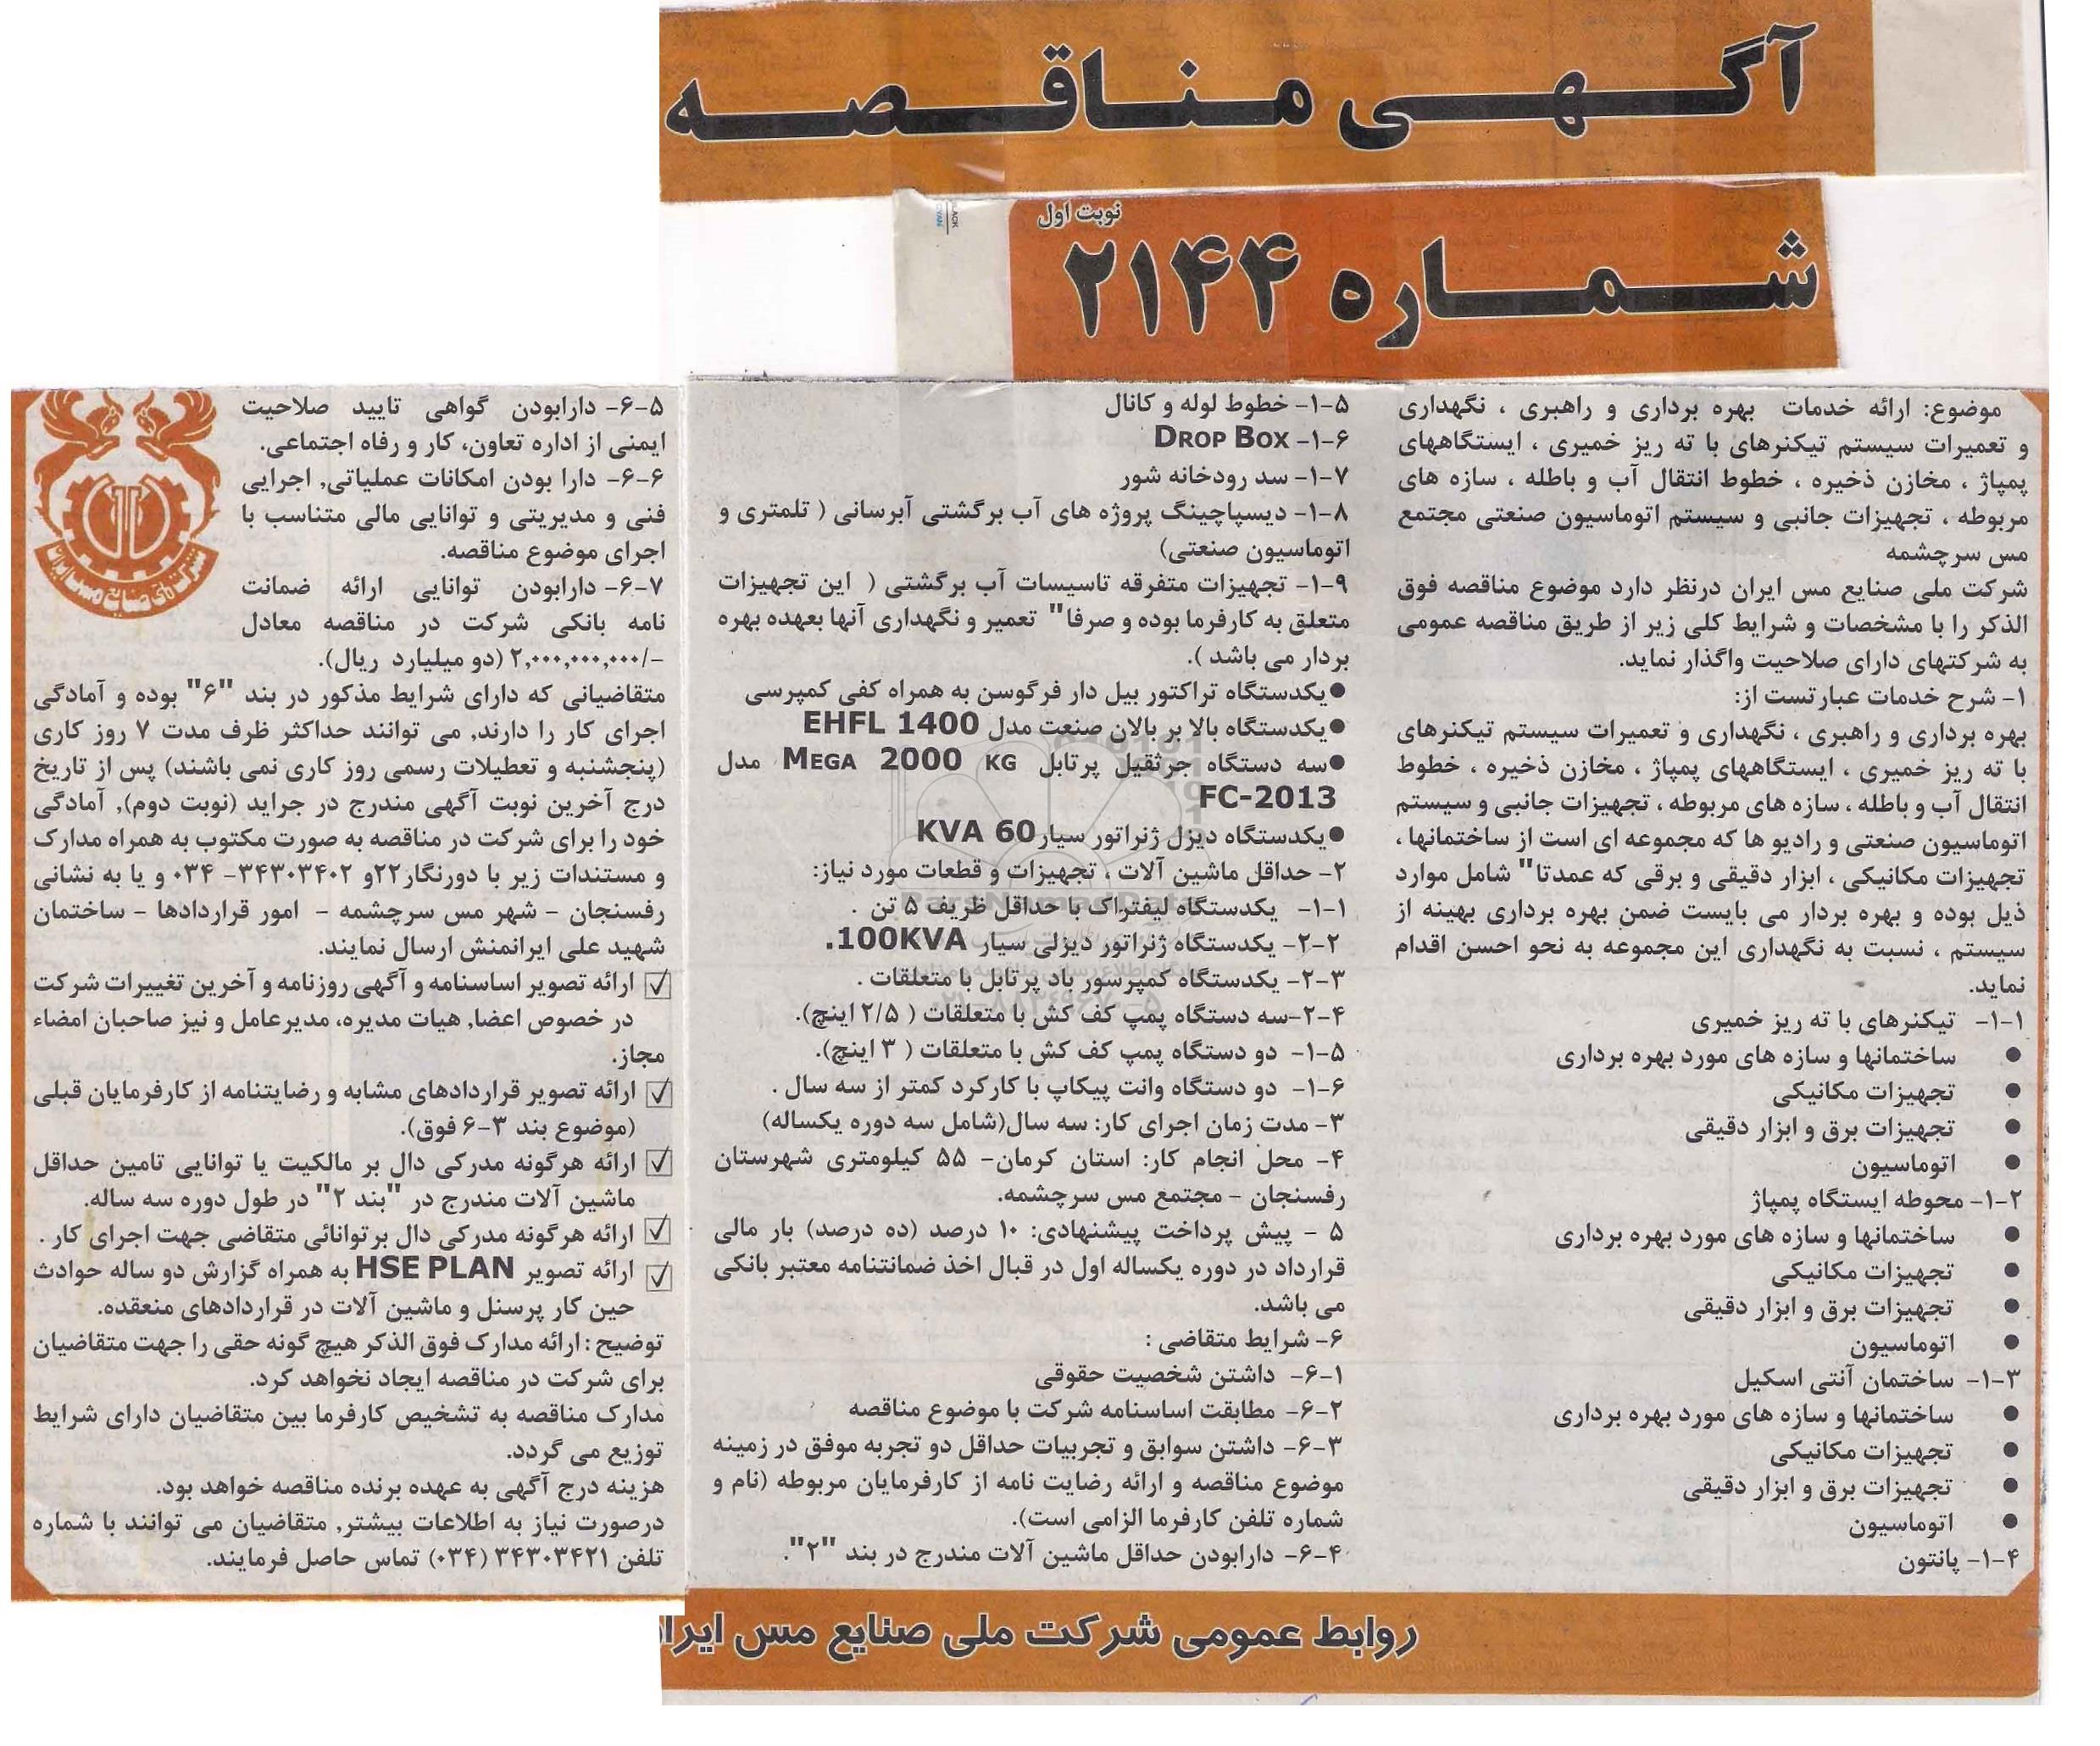 آگهی مناقصه
نوبت اول
شماره ۲۱۴۴
موضوع: ارائه خدمات بهره برداری و راهبری ، نگهداری
و تعمیرات سیستم تیکنرهای با ته ریز خمیری ، ایستگاههای
پمپاژ ، مخازن ذخیره ، خطوط انتقال آب و باطله ، سازه های
مربوطه ، تجهیزات جانبی و سیستم اتوماسیون صنعتی مجتمع
مس سرچشمه
شرکت ملی صنایع مس ایران درنظر دارد موضوع مناقصه فوق
الذکر را با مشخصات و شرایط کلی زیر از طریق مناقصه عمومی
به شرکتهای دارای صلاحیت واگذار نماید.
۱- شرح خدمات عبارتست از:
بهره برداری و راهبری ، نگهداری و تعمیرات سیستم تیکنرهای
با ته ریز خمیری ، ایستگاههای پمپاژ ، مخازن ذخیره ، خطوط
انتقال آب و باطله ، سازه های مربوطه ، تجهیزات جانبی و سیستم
اتوماسیون صنعتی و رادیو ها که مجموعه ای است از ساختمانها ،
تجهیزات مکانیکی ، ابزار دقیقی و برقی که عمدتا" شامل موارد
ذیل بوده و بهره بردار می بایست ضمن بهره برداری بهینه از
سیستم ، نسبت به نگهداری این مجموعه به نحو احسن اقدام
نماید.
۱-۱- تیکنرهای با ته ریز خمیری
● ساختمانها و سازه های مورد بهره برداری
● تجهیزات مکانیکی
● تجهیزات برق و ابزار دقیقی
● اتوماسیون
۱-۲- محوطه ایستگاه پمپاژ
● ساختمانها و سازه های مورد بهره برداری
● تجهیزات مکانیکی
● تجهیزات برق و ابزار دقیقی
● اتوماسیون
۱-۳- ساختمان آنتی اسکیل
● ساختمانها و سازه های مورد بهره برداری
● تجهیزات مکانیکی
● تجهیزات برق و ابزار دقیقی
● اتوماسیون
۱-۴- پانتون
۱-۵- خطوط لوله و کانال
۱-۶- DROP BOX
۱-۷- سد رودخانه شور
۱-۸- دیسپاچینگ پروژه های آب برگشتی آبرسانی ( تلمتری و
اتوماسیون صنعتی)
۱-۹- تجهیزات متفرقه تاسیسات آب برگشتی ( این تجهیزات
متعلق به کارفرما بوده و صرفا" تعمیر و نگهداری آنها بعهده بهره
بردار می باشد ).
●یکدستگاه تراکتور بیل دار فرگوسن به همراه کفی کمپرسی
●یکدستگاه بالا بر بالان صنعت مدل EHFL 1400
●سه دستگاه جرثقیل پرتابل MEGA 2000 KG مدل
FC-2013
●یکدستگاه دیزل ژنراتور سیار KVA 60
۲- حداقل ماشین آلات ، تجهیزات و قطعات مورد نیاز:
۱-۱- یکدستگاه لیفتراک با حداقل ظریف ۵ تن .
۲-۲- یکدستگاه ژنراتور دیزلی سیار 100KVA.
۲-۳- یکدستگاه کمپرسور باد پرتابل با متعلقات .
۲-۴-سه دستگاه پمپ کف کش با متعلقات ( ۲/۵ اینچ).
۱-۵- دو دستگاه پمپ کف کش با متعلقات ( ۳ اینچ).
۱-۶- دو دستگاه وانت پیکاپ با کارکرد کمتر از سه سال .
۳- مدت زمان اجرای کار: سه سال(شامل سه دوره یکساله)
۴- محل انجام کار: استان کرمان- ۵۵ کیلومتری شهرستان
رفسنجان - مجتمع مس سرچشمه.
۵ - پیش پرداخت پیشنهادی: ۱۰ درصد (ده درصد) بار مالی
قرارداد در دوره یکساله اول در قبال اخذ ضمانتنامه معتبر بانکی
می باشد.
۶- شرایط متقاضی :
۶-۱- داشتن شخصیت حقوقی
۶-۲- مطابقت اساسنامه شرکت با موضوع مناقصه
۶-۳- داشتن سوابق و تجربیات حداقل دو تجربه موفق در زمینه
موضوع مناقصه و ارائه رضایت نامه از کارفرمایان مربوطه (نام و
شماره تلفن کارفرما الزامی است).
۶-۴- دارابودن حداقل ماشین آلات مندرج در بند "۲".
۶-۵- دارابودن گواهی تایید صلاحیت
ایمنی از اداره تعاون، کار و رفاه اجتماعی.
۶-۶- دارا بودن امکانات عملیاتی, اجرایی
فنی و مدیریتی و توانایی مالی متناسب با
اجرای موضوع مناقصه.
۶-۷- دارابودن توانایی ارائه ضمانت
نامه بانکی شرکت در مناقصه معادل
۲,۰۰۰,۰۰۰,۰۰۰/- (دو میلیارد ریال).
متقاضیانی که دارای شرایط مذکور در بند "۶" بوده و آمادگی
اجرای کار را دارند, می توانند حداکثر ظرف مدت ۷ روز کاری
(پنجشنبه و تعطیلات رسمی روز کاری نمی باشند) پس از تاریخ
درج آخرین نوبت آگهی مندرج در جراید (نوبت دوم), آمادگی
خود را برای شرکت در مناقصه به صورت مکتوب به همراه مدارک
و مستندات زیر با دورنگار۲۲و ۳۴۳۰۳۴۰۲- ۰۳۴ و یا به نشانی
رفسنجان - شهر مس سرچشمه - امور قراردادها - ساختمان
شهید علی ایرانمنش ارسال نمایند.
☑ ارائه تصویر اساسنامه و آگهی روزنامه و آخرین تغییرات شرکت
در خصوص اعضا, هیات مدیره، مدیرعامل و نیز صاحبان امضاء
مجاز.
☑ ارائه تصویر قراردادهای مشابه و رضایتنامه از کارفرمایان قبلی
(موضوع بند ۳-۶ فوق).
☑ ارائه هرگونه مدرکی دال بر مالکیت یا توانایی تامین حداقل
ماشین آلات مندرج در "بند ۲" در طول دوره سه ساله.
☑ ارائه هرگونه مدرکی دال برتوانائی متقاضی جهت اجرای کار .
☑ ارائه تصویر HSE PLAN به همراه گزارش دو ساله حوادث
حین کار پرسنل و ماشین آلات در قراردادهای منعقده.
توضیح : ارائه مدارک فوق الذکر هیچ گونه حقی را جهت متقاضیان
برای شرکت در مناقصه ایجاد نخواهد کرد.
مدارک مناقصه به تشخیص کارفرما بین متقاضیان دارای شرایط
توزیع می گردد.
هزینه درج آگهی به عهده برنده مناقصه خواهد بود.
درصورت نیاز به اطلاعات بیشتر, متقاضیان می توانند با شماره
تلفن ۳۴۳۰۳۴۲۱ (۰۳۴) تماس حاصل فرمایند.
شرکت ملی صنایع مس ایران
روابط عمومی شرکت ملی صنایع مس ایرا